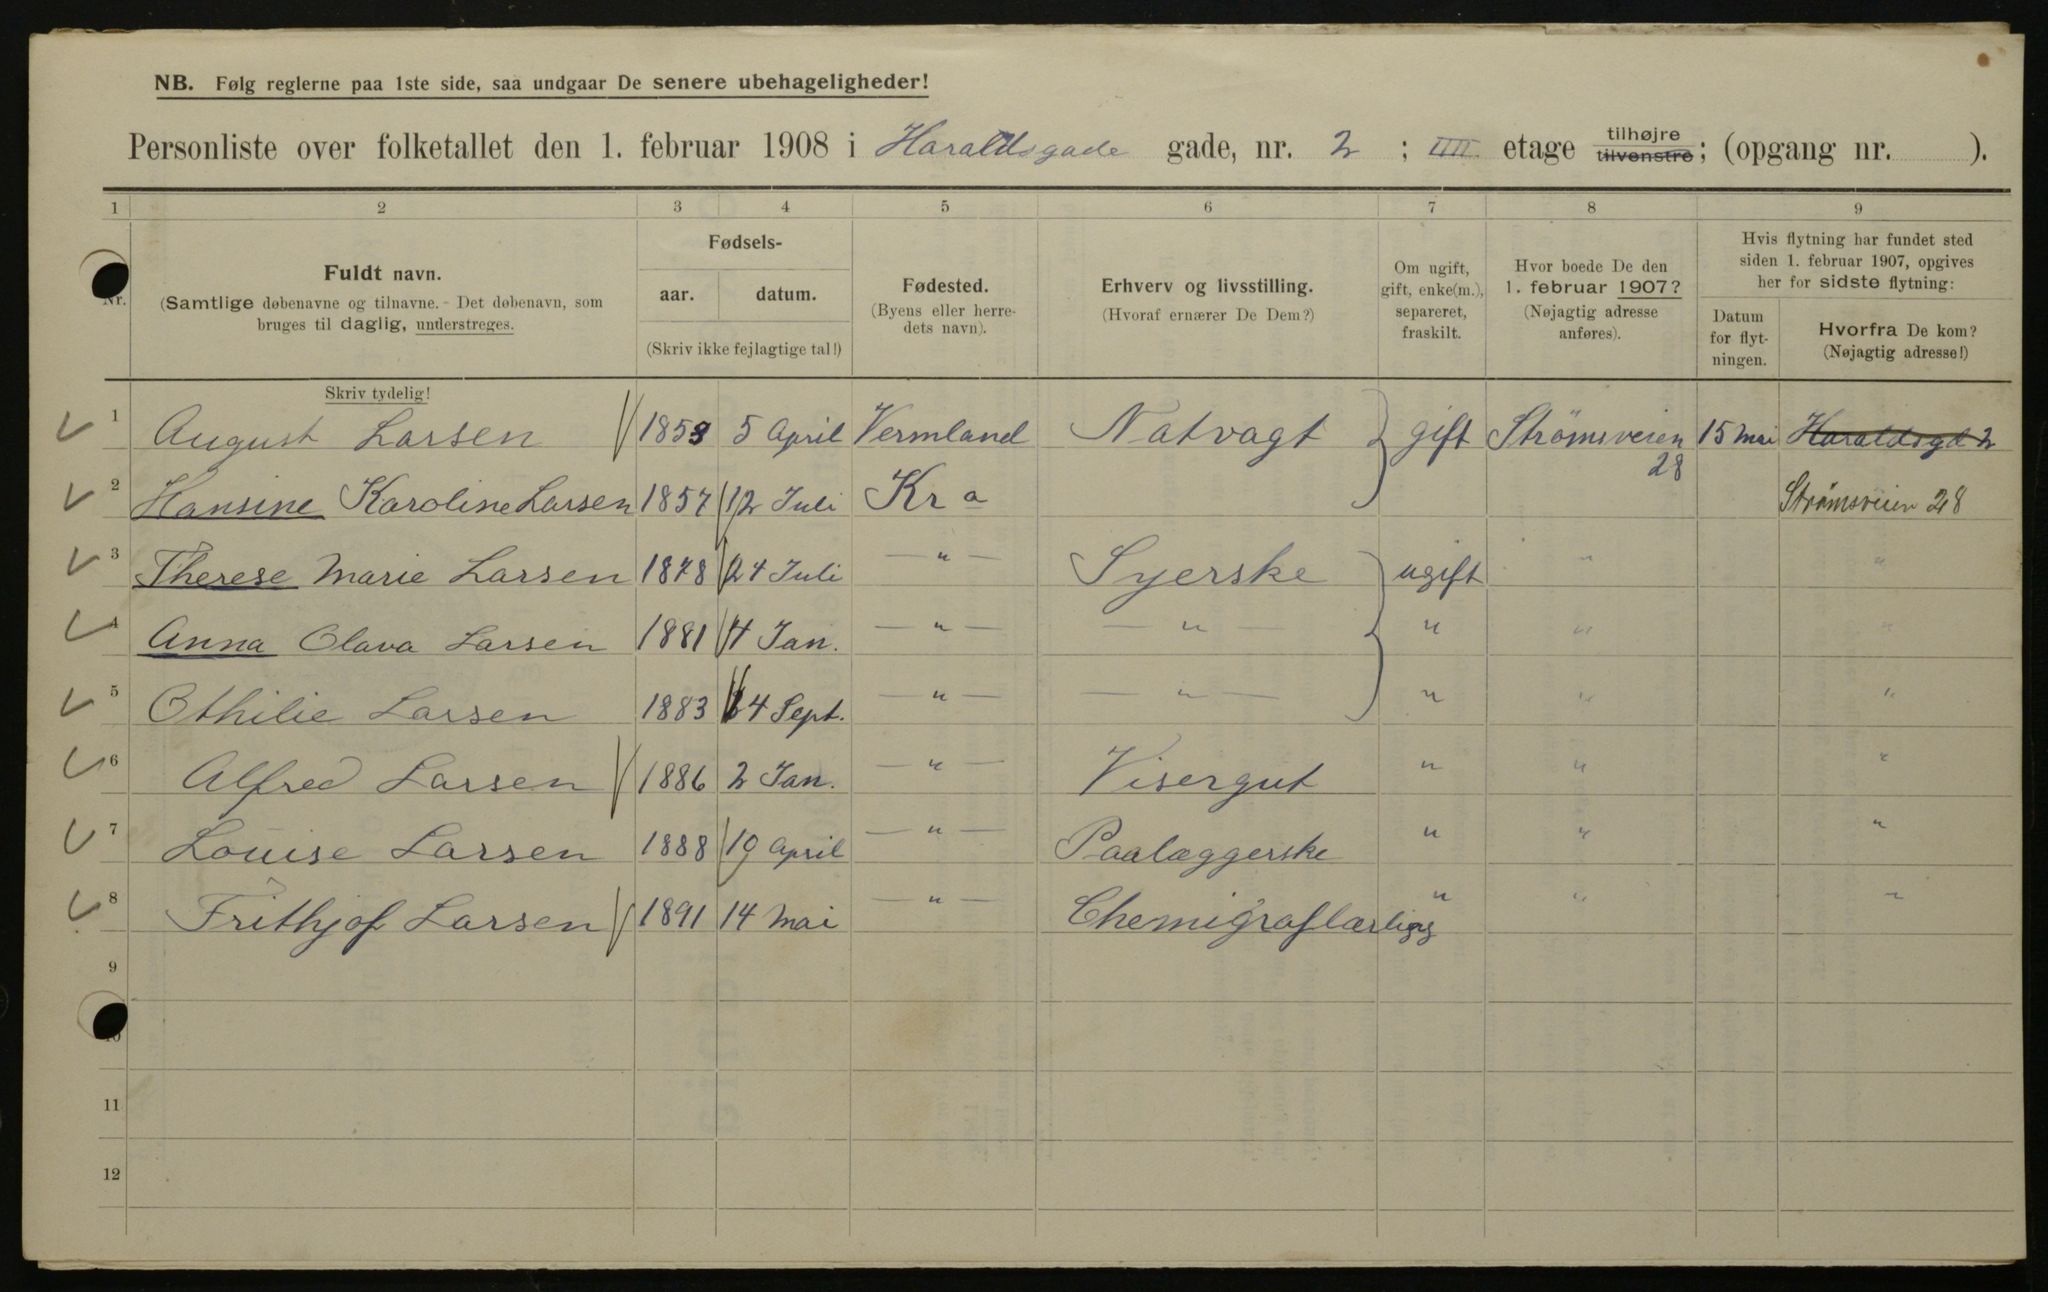 NB. Følg reglerne paa 1ste side, saa undgaar De senere ubehageligheder!
Personliste over folketallet den 1. februar 1908 i Haraldsgade gade, nr. 2 ; IIII etage tilhøjre tilvenstre; (opgang nr. ).
1 2 3 4 5 6 7 8 9
Nr.
Fuldt navn.
(Samtlige døbenavne og tilnavne. - Det døbenavn, som
bruges til daglig, understreges.
Skriv tydelig!
Fødsels-
aar. datum.
(Skriv ikke fejlagtige tal!)
Fødested.
(Byens eller herre-
dets navn).
Erhverv og livsstilling.
(Hvoraf ernærer De Dem?)
Om ugift,
gift, enke(m.),
separeret,
fraskilt.
Hvor boede De den
1. februar 1907?
(Nøjagtig adresse
anføres).
Hvis flytning har fundet sted
siden 1. februar 1907, opgives
her for sidste flytning:
Datum
for flyt-
ningen.
Hvorfra De kom?
(Nøjagtig adresse!)
1 August Larsen 1853 5 April Vermland Natvagt gift Strømsveien 28 15 Mai Haraldsgd 2
2 Hansine Karoline Larsen 1857 12 Juli Kra Strømsveien 28
3 Therese Marie Larsen 1878 24 Juli — " — Syerske ugift " "
4 Anna Olava Larsen 1881 4 Jan. — " — — " — " " "
5 Othilie Larsen 1883 4 Sept. — " — — " — " " "
6 Alfred Larsen 1886 2 Jan. — " — Visergut " " "
7 Louise Larsen 1888 19 April — " — Paalæggerske " " "
8 Frithjof Larsen 1891 14 Mai — " — Chemigraflærling " " "
9
10
11
12